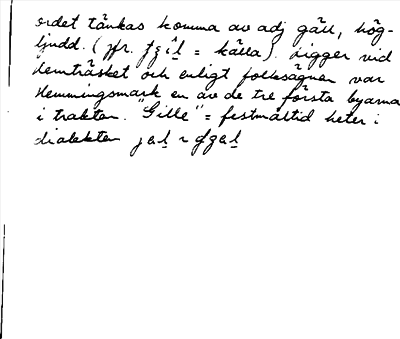 ordet tänkas komma av adj gäll, hög-
ljudd. (jfr. = källa). Ligger vid
Hemträsket och enligt folksägnen var
Hemmingsmark en av de tre första byarna
i trakten. "Gille" = festmåltid heter i
dialekten